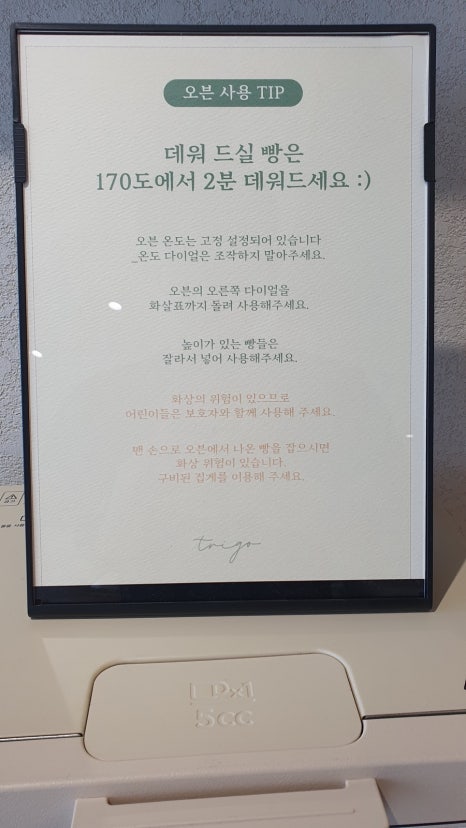 오븐 사용 TIP
데워 드실 빵은
170도에서 2분 데워드세요 :)
오븐 온도는 고정 설정되어 있습니다
_온도 다이얼은 조작하지 말아주세요.
오븐의 오른쪽 다이얼을
화살표까지 돌려 사용해주세요.
높이가 있는 빵들은
잘라서 넣어 사용해주세요.
화상의 위험이 있으므로
어린이들은 보호자와 함께 사용해 주세요.
맨 손으로 오븐에서 나온 빵을 잡으시면
화상 위험이 있습니다.
구비된 집게를 이용해 주세요.
trigo
5CC